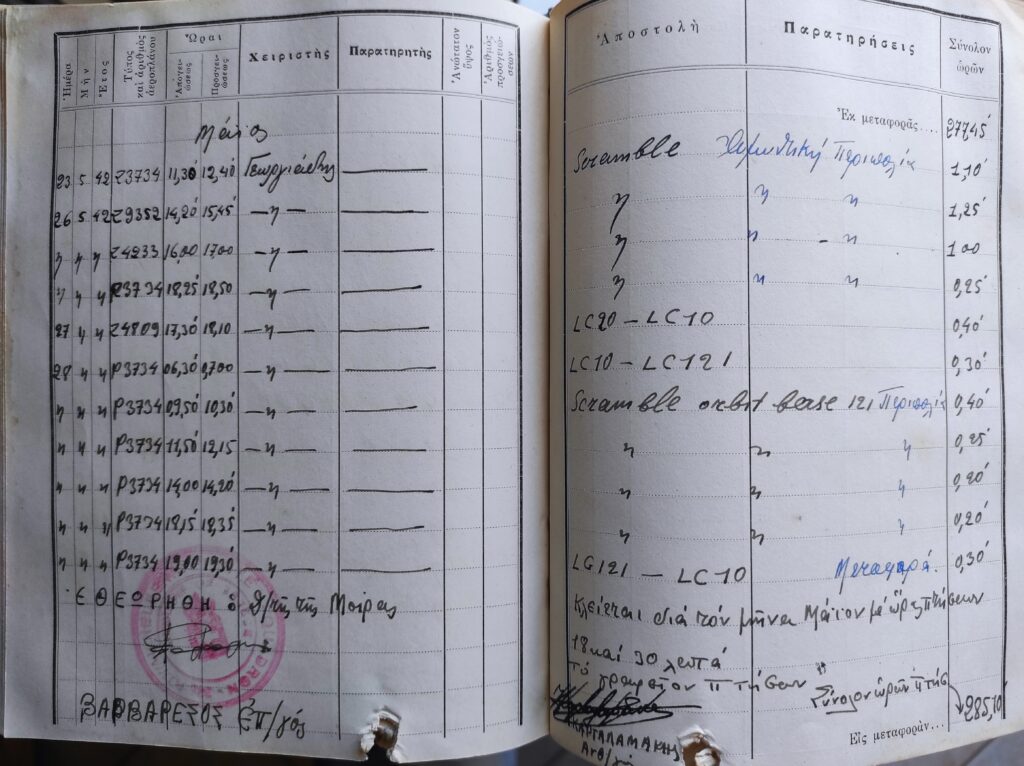 Ἡμέρα Μὴν Ἔτος Τύπος καὶ ἀριθμὸς ἀεροπλάνου Ὧραι Ἀπογειώσεως Προσγειώσεως Χειριστὴς Παρατηρητὴς Ἀνώτατον ὕψος Ἀριθμὸς προσγειώσεων
Μάϊος
23 5 42 Z3734 11,30 12,40 Γεωργιάδης
26 5 42 Z9352 14,20 15,45 —〃—
〃 〃 〃 Z4233 16,00 17,00 —〃—
〃 〃 〃 Z3734 18,25 18,50 —〃—
27 〃 〃 Z4809 17,30 18,10 —〃—
28 〃 〃 P3734 06,30 0,700 —〃—
〃 〃 〃 P3734 09,50 10,30 —〃—
〃 〃 〃 P3734 11,50 12,15 —〃—
〃 〃 〃 P3734 14,00 14,20 —〃—
〃 〃 〃 P3734 18,15 18,35 —〃—
〃 〃 〃 P3734 19,00 19,30 —〃—
ΕΘΕΩΡΗΘΗ Ὁ Δ/τὴς τῆς Μοίρας
ΒΑΡΒΑΡΕΣΟΣ Ἐπ/γός
Ἀποστολὴ Παρατηρήσεις Σύνολον ὡρῶν
Ἐκ μεταφορᾶς.... 277,45
Scramble Περιπολία 1,10
〃 〃 〃 1,25
〃 〃 - 〃 1 00
〃 〃 〃 0,25
LC20 — LC10 0,40
LC10 — LC121 0,30
Scramble orbit berse 121 Περιπολία 0,40
〃 〃 〃 0,25
〃 〃 〃 0,20
〃 〃 〃 0,20
LG121 — LC10 Μεταφορά. 0,30
Κλείεται διά τόν μῆνα Μάϊον μέ ὥρας πτήσεων
18 καί 30 λεπτά
Τό γραφεῖον πτήσεων Σύνολον ὡρῶν πτήσ 285,10
ΚΑΡΓΑΛΑΜΑΚΗΣ
Εἰς μεταφοράν...